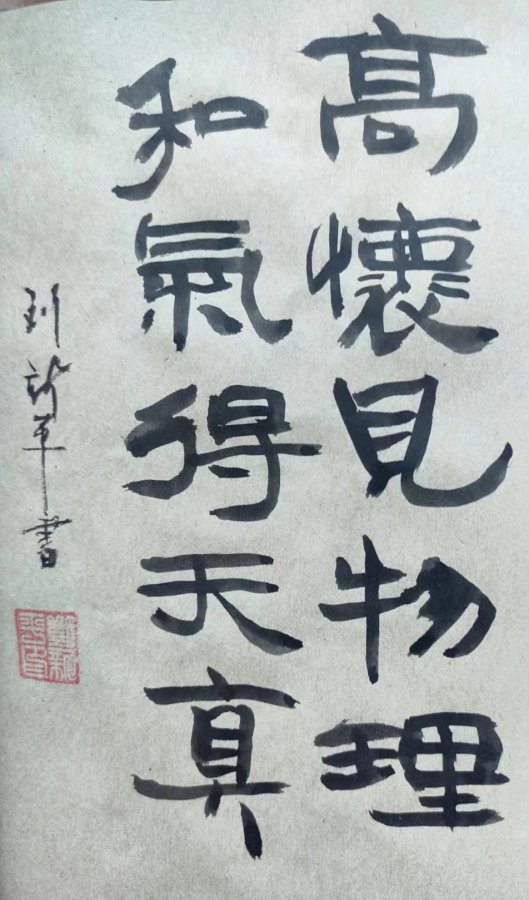 髙懷見物理
和氣得天真
新平書